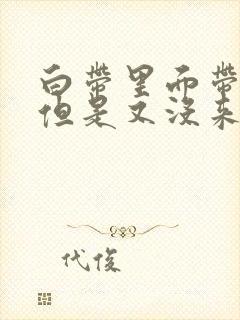 白带里而带
但是又没来
代俊